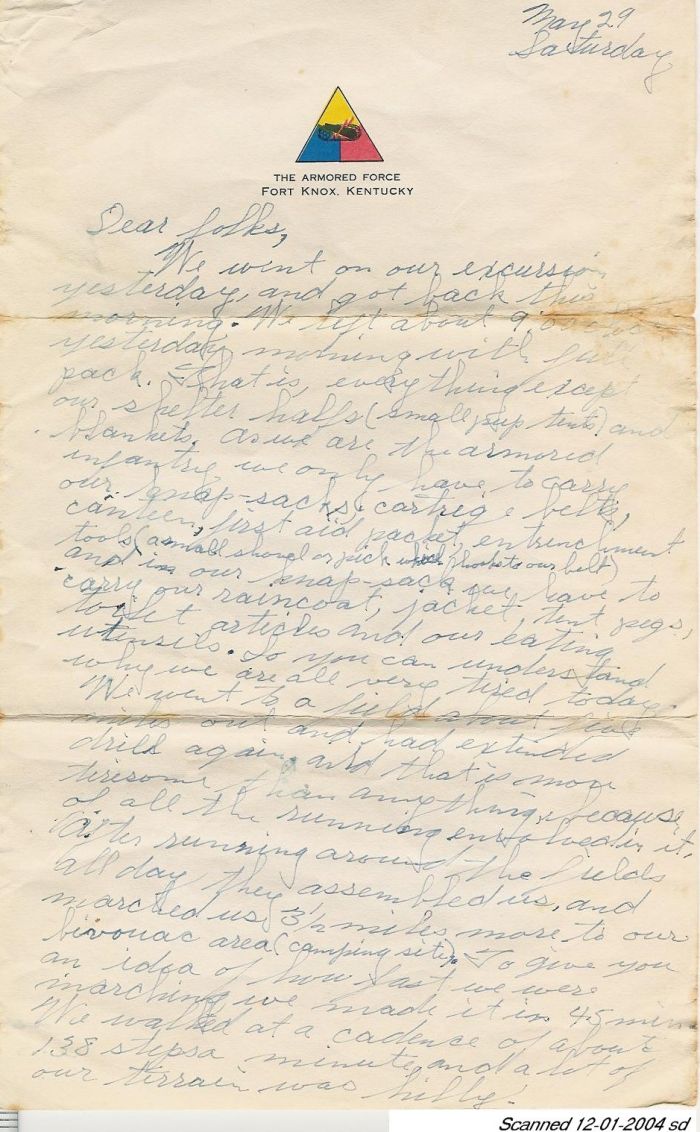 May 29
Saturday
THE ARMORED FORCE
FORT KNOX, KENTUCKY
Dear folks,
We went on our excursion
yesterday, and got back this
morning. We left about 9:00
yesterday morning with full
pack. That is, everything except
our shelter halfs (small pup tents) and
blankets. As we are the armored
infantry we only have to carry
our knap-sacks, cartrige belts,
canteen, first aid packet, entrenchment
tools (a small shovel or pick which hooks to our belt)
and in our knap-sack we have to
carry our raincoat, jacket, tent pegs,
toilet articles and our eating
utensils. So you can understand
why we are all very tired today.
We went to a field about five
miles out and had extended
drill again, and that is more
tiresome than anything, because
of all the running envolved in it.
After running around the fields
all day, they assembled us, and
marched us 3½ miles more to our
bivouac area (camping site). To give you
an idea of how fast we were
marching we made it in 45 min
We walked at a cadence of about
138 steps a minute, and a lot of
our terrain was hilly.
Scanned 12-01-2004 sd